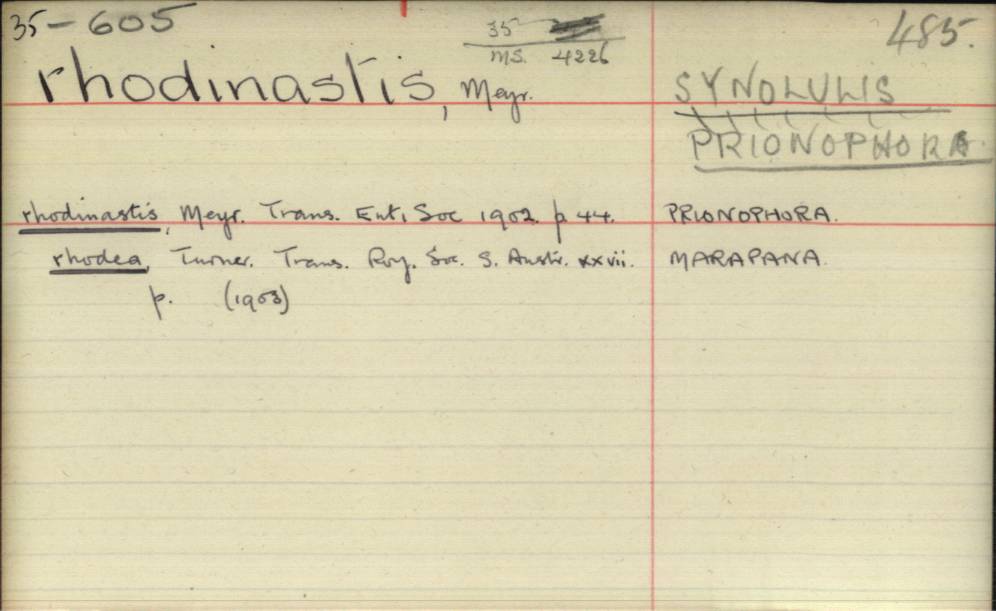 35-605
35
MS. 4226
485.
rhodinastis, Meyr.
SYNOLULIS
PRIONOPHORA.
rhodinastis, Meyr. Trans. Ent. Soc 1902. p 44. PRIONOPHORA.
rhodea, Turner. Trans. Roy. Soc. S. Austr. xxvii. MARAPANA.
p. (1903)